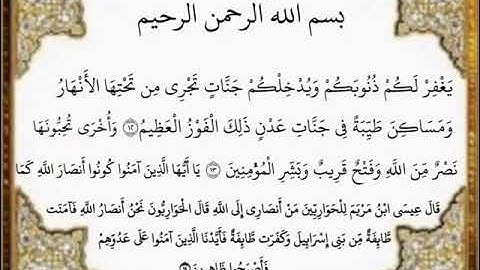 بسم الله الرحمن الرحيم
يَغْفِرْ لَكُمْ ذُنُوبَكُمْ وَيُدْخِلْكُمْ جَنَّاتٍ تَجْرِى مِن تَحْتِهَا الأَنْهَارُ
وَمَسَاكِنَ طَيِّبَةً فِى جَنَّاتِ عَدْنٍ ذَلِكَ الْفَوْزُ الْعَظِيمُ ﴿١٢﴾ وَأُخْرَى تُحِبُّونَهَا
نَصْرٌ مِّنَ اللَّهِ وَفَتْحٌ قَرِيبٌ وَبَشِّرِ الْمُؤْمِنِينَ ﴿١٣﴾ يَا أَيُّهَا الَّذِينَ آمَنُوا كُونُوا أَنصَارَ اللَّهِ كَمَا
قَالَ عِيسَى ابْنُ مَرْيَمَ لِلْحَوَارِيِّينَ مَنْ أَنصَارِى إِلَى اللَّهِ قَالَ الْحَوَارِيُّونَ نَحْنُ أَنصَارُ اللَّهِ فَآمَنَت
طَّائِفَةٌ مِّن بَنِى إِسْرَائِيلَ وَكَفَرَت طَّائِفَةٌ فَأَيَّدْنَا الَّذِينَ آمَنُوا عَلَى عَدُوِّهِمْ
فَأَصْبَحُوا ظَاهِرِينَ ﴿١٤﴾